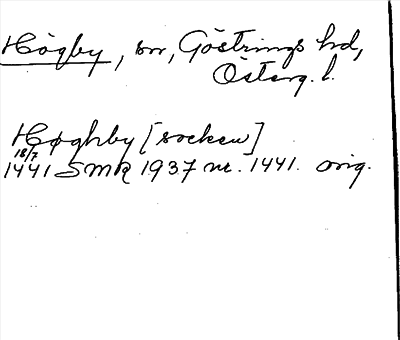 Högby, sn, Göstrings hd,
Österg. l.
Høghby [socken]
18/7
1441 SMR 1937 nr. 1441. orig.